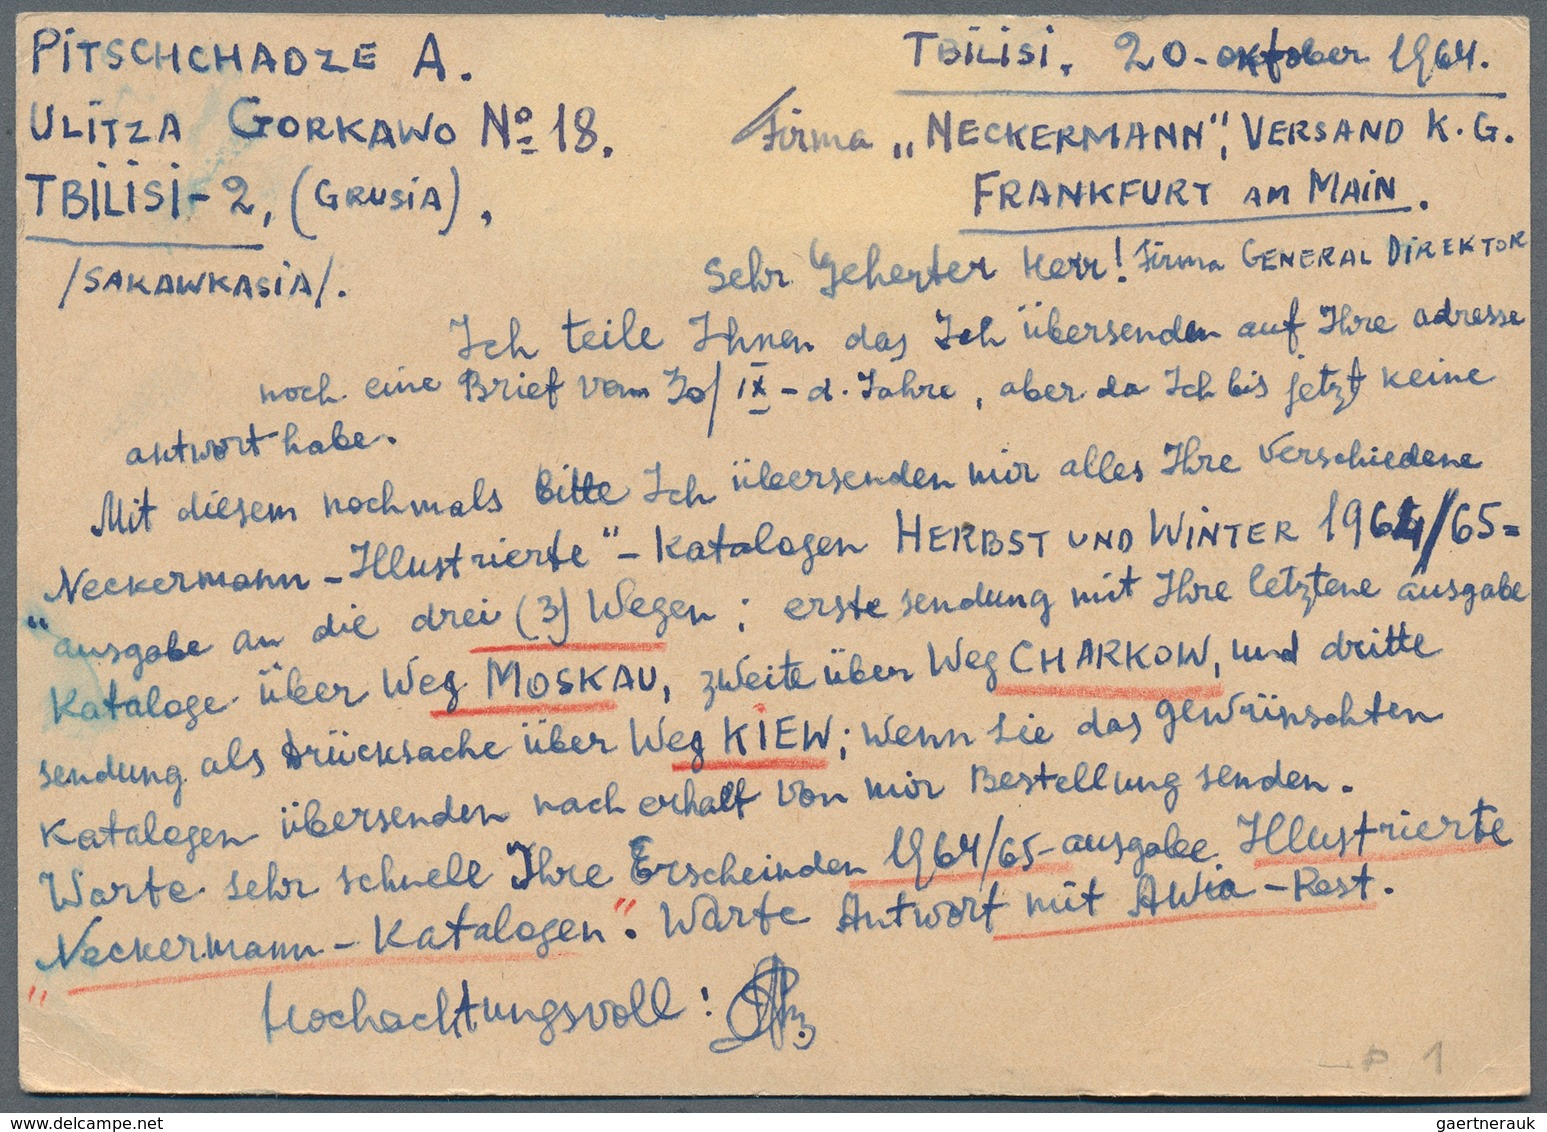 PITSCHCHADZE A.
ULITZA GORKAWO № 18.
TBILISI-2, (GRUSIA),
/SAKAWKASIA/.
TBILISI, 20-oktober 1964.
Firma „NECKERMANN", VERSAND K.G.
FRANKFURT AM MAIN.
Sehr Geherter Herr! Firma GENERAL DIREKTOR
Ich teile Ihnen das Ich übersenden auf Ihre adresse
noch eine Brief vom 30/IX-d. Jahre, aber da Ich bis jetzt keine
antwort habe.
Mit diesem nochmals bitte Ich übersenden mir alles Ihre verschiedene
Neckermann-Illustrierte"-Katalogen HERBST UND WINTER 1964/65=
"ausgabe an die drei (3) Wegen; erste sendung mit Ihre letztene ausgabe
Kataloge über Weg MOSKAU, zweite über Weg CHARKOW, und dritte
sendung als drücksache über Weg KIEW; wenn Sie das gewünschten
Katalogen übersenden nach erhalt von mir Bestellung senden.
Warte sehr schnell Ihre Erscheinden 1964/65-ausgabe. Illustrierte
"Neckermann-Katalogen". Warte Antwort mit AWia-Post.
Hochachtungsvoll!
P 1
gaertnerauk